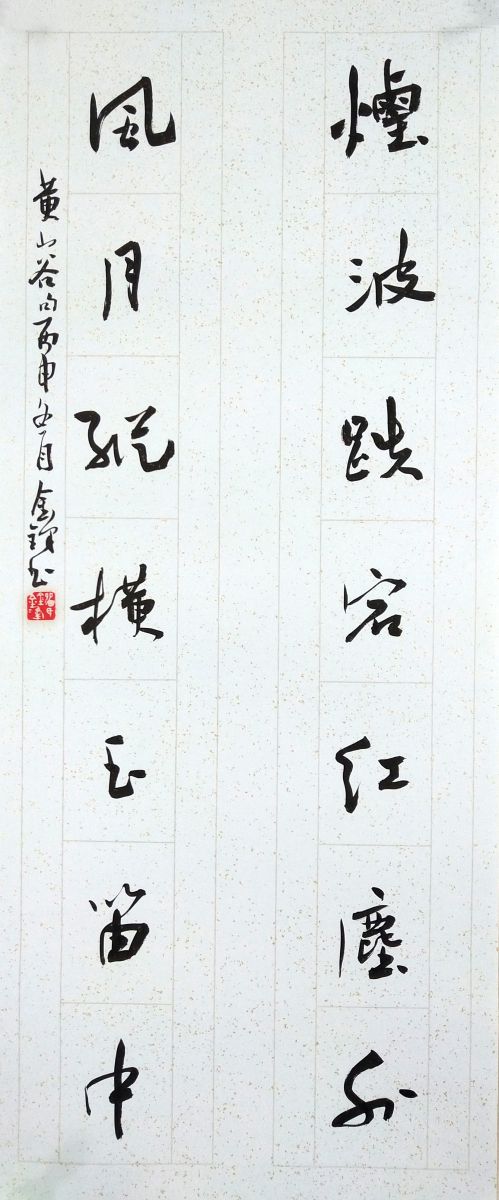 煙波跌宕紅塵外
風月縱橫玉笛中
黄山谷句丙申冬月金書